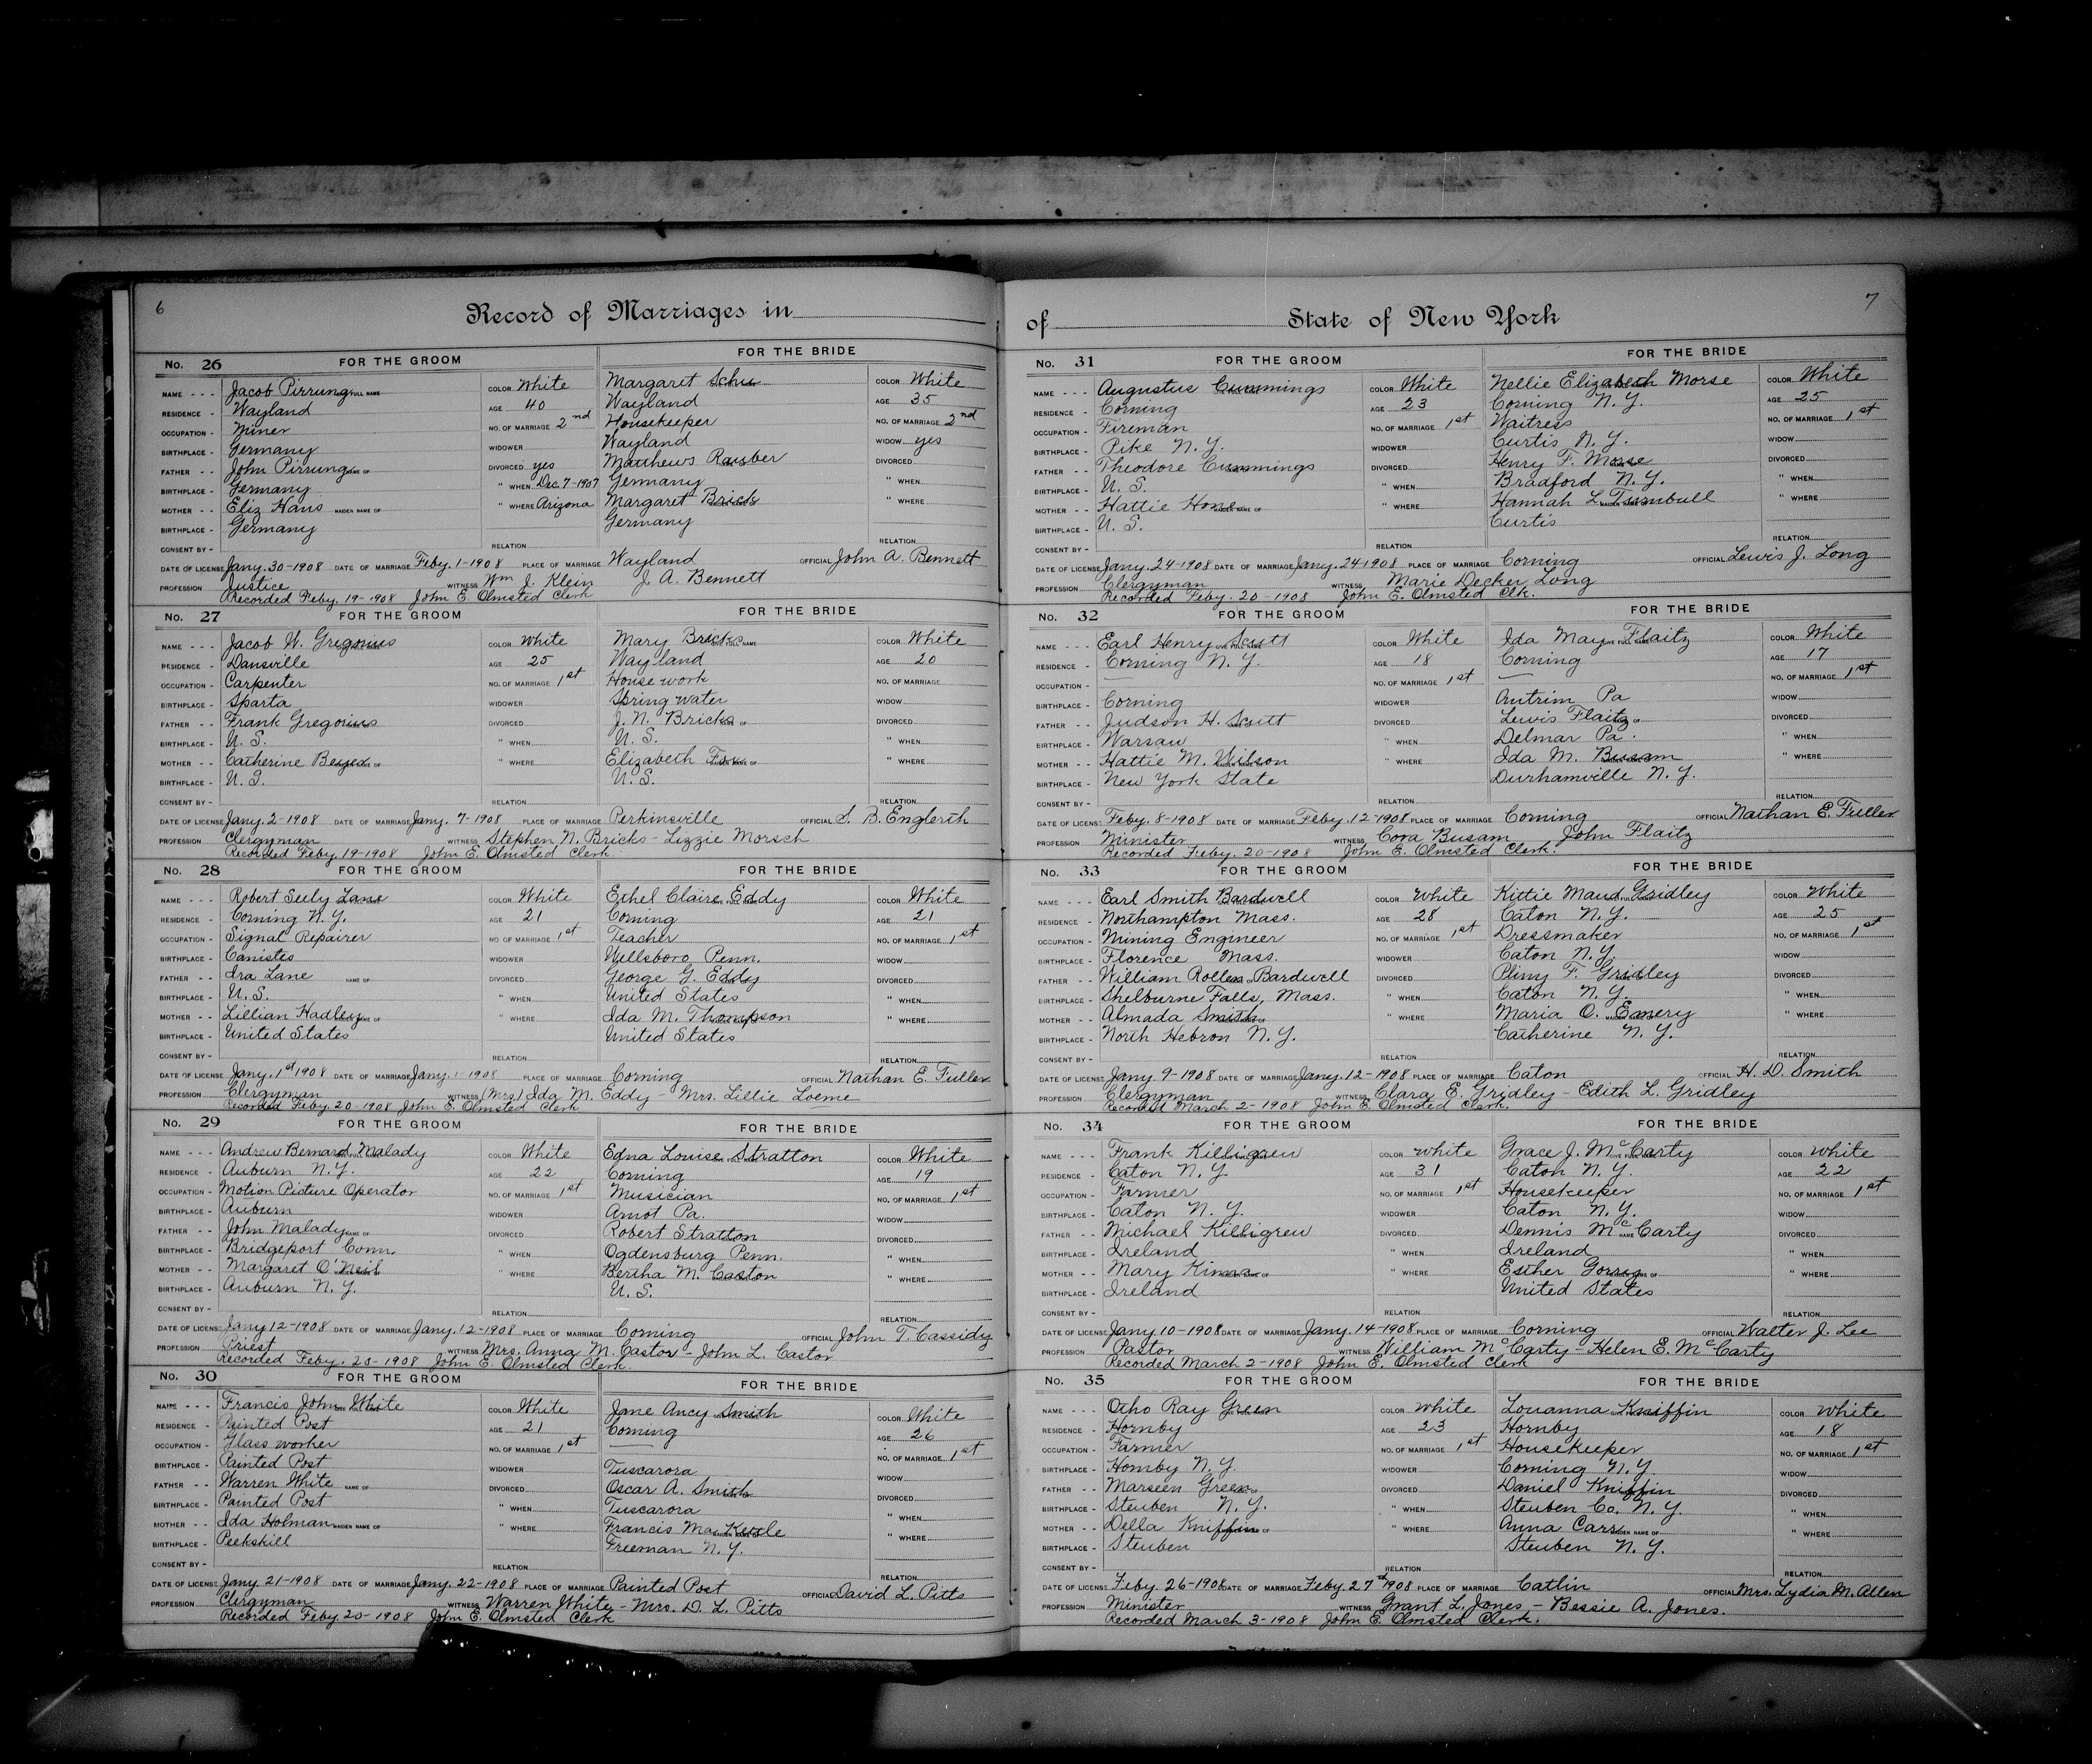 6
Record of Marriages in
No. 26 FOR THE GROOM FOR THE BRIDE
NAME - - - Jacob Pirrung GIVE FULL NAME COLOR White Margaret Schu COLOR White
RESIDENCE - Wayland AGE 40 Wayland AGE 35
OCCUPATION - Miner NO. OF MARRIAGE 2nd Housekeeper NO. OF MARRIAGE 2nd
BIRTHPLACE - Germany WIDOWER Wayland WIDOW yes
FATHER - - John Pirrung NAME OF DIVORCED yes Matthews Rauber DIVORCED
BIRTHPLACE - Germany " WHEN Dec. 7-1907 Germany " WHEN
MOTHER - - Eliz Hans MAIDEN NAME OF " WHERE Arizona Margaret Brick " WHERE
BIRTHPLACE - Germany Germany
CONSENT BY - RELATION RELATION
DATE OF LICENSE Jany. 30-1908 DATE OF MARRIAGE Feby. 1-1908 PLACE OF MARRIAGE Wayland OFFICIAL John A. Bennett
PROFESSION Justice WITNESS Wm J. Klein J. A. Bennett
Recorded Feby. 19-1908 John E. Olmsted Clerk
No. 27 FOR THE GROOM FOR THE BRIDE
NAME - - - Jacob W. Gregorius COLOR White Mary Bricks GIVE FULL NAME COLOR White
RESIDENCE - Dansville AGE 25 Wayland AGE 20
OCCUPATION - Carpenter NO. OF MARRIAGE 1st House work NO. OF MARRIAGE
BIRTHPLACE - Sparta WIDOWER Spring water WIDOW
FATHER - - Frank Gregorius DIVORCED J. N. Bricks NAME OF DIVORCED
BIRTHPLACE - U. S. " WHEN U. S. " WHEN
MOTHER - - Catherine MAIDEN NAME OF " WHERE Elizabeth MAIDEN NAME OF " WHERE
BIRTHPLACE - U. S. U. S.
CONSENT BY - RELATION RELATION
DATE OF LICENSE Jany. 2-1908 DATE OF MARRIAGE Jany. 7-1908 PLACE OF MARRIAGE Perkinsville OFFICIAL S. B. Englerth
PROFESSION Clergyman WITNESS Stephen N. Bricks - Lizzie Morsch
Recorded Feby. 19-1908 John E. Olmsted Clerk
No. 28 FOR THE GROOM FOR THE BRIDE
NAME - - - Robert Seely Lane COLOR White Ethel Claire Eddy COLOR White
RESIDENCE - Corning N. Y. AGE 21 Corning AGE 21
OCCUPATION - Signal Repairer NO. OF MARRIAGE 1st Teacher NO. OF MARRIAGE 1st
BIRTHPLACE - Canisteo WIDOWER Wellsboro, Penn. WIDOW
FATHER - - Ira Lane NAME OF DIVORCED George G. Eddy DIVORCED
BIRTHPLACE - U. S. " WHEN United States " WHEN
MOTHER - - Lillian Hadley MAIDEN NAME OF " WHERE Ida M. Thompson " WHERE
BIRTHPLACE - United States United States
CONSENT BY - RELATION RELATION
DATE OF LICENSE Jany. 1st 1908 DATE OF MARRIAGE Jany. 1-1908 PLACE OF MARRIAGE Corning OFFICIAL Nathan E. Fuller
PROFESSION Clergyman WITNESS (Mrs.) Ida M. Eddy - Mrs. Lillie Loeme
Recorded Feby. 20-1908 John E. Olmsted Clerk
No. 29 FOR THE GROOM FOR THE BRIDE
NAME - - - Andrew Bernard Malady COLOR White Edna Louise Stratton COLOR White
RESIDENCE - Auburn N. Y. AGE 22 Corning AGE 19
OCCUPATION - Motion Picture Operator NO. OF MARRIAGE 1st Musician NO. OF MARRIAGE 1st
BIRTHPLACE - Auburn WIDOWER Arnot Pa. WIDOW
FATHER - - John Malady NAME OF DIVORCED Robert Stratton DIVORCED
BIRTHPLACE - Bridgeport Conn. " WHEN Ogdensburg Penn. " WHEN
MOTHER - - Margaret O'Neil " WHERE Bertha M. Caston " WHERE
BIRTHPLACE - Auburn N. Y. U. S.
CONSENT BY - RELATION RELATION
DATE OF LICENSE Jany 12-1908 DATE OF MARRIAGE Jany. 12-1908 PLACE OF MARRIAGE Corning OFFICIAL John T. Cassidy
PROFESSION Priest WITNESS Mrs. Anna M. Castor - John L. Castor
Recorded Feby. 20-1908 John E. Olmsted Clerk.
No. 30 FOR THE GROOM FOR THE BRIDE
NAME - - - Francis John White COLOR White Jane Ancy Smith COLOR White
RESIDENCE - Painted Post AGE 21 Corning AGE 26
OCCUPATION - Glass worker NO. OF MARRIAGE 1st — NO. OF MARRIAGE 1st
BIRTHPLACE - Painted Post WIDOWER Tuscarora WIDOW
FATHER - - Warren White NAME OF DIVORCED Oscar A. Smith DIVORCED
BIRTHPLACE - Painted Post " WHEN Tuscarora " WHEN
MOTHER - - Ida Holman MAIDEN NAME OF " WHERE Francis Ma Kettle " WHERE
BIRTHPLACE - Peekskill Freeman N. Y.
CONSENT BY - RELATION RELATION
DATE OF LICENSE Jany. 21-1908 DATE OF MARRIAGE Jany. 22-1908 PLACE OF MARRIAGE Painted Post OFFICIAL David L. Pitts
PROFESSION Clergyman WITNESS Warren White - Mrs. D. L. Pitts
Recorded Feby. 20-1908 John E. Olmsted Clerk
7
of State of New York
No. 31 FOR THE GROOM FOR THE BRIDE
NAME - - - Augustus Cummings COLOR White Nellie Elizabeth Morse COLOR White
RESIDENCE - Corning AGE 23 Corning N. Y. AGE 25
OCCUPATION - Fireman NO. OF MARRIAGE 1st Waitress NO. OF MARRIAGE 1st
BIRTHPLACE - Pike N. Y. WIDOWER Curtis N. Y. WIDOW
FATHER - - Theodore Cummings DIVORCED Henry F. Morse DIVORCED
BIRTHPLACE - U. S. " WHEN Bradford N. Y. " WHEN
MOTHER - - Hattie Hone MAIDEN NAME OF " WHERE Hannah L. Turnbull " WHERE
BIRTHPLACE - U. S. Curtis
CONSENT BY - RELATION RELATION
DATE OF LICENSE Jany. 24-1908 DATE OF MARRIAGE Jany. 24 1908 PLACE OF MARRIAGE Corning OFFICIAL Lewis J. Long
PROFESSION Clergyman WITNESS Marie Decker Long
Recorded Feby. 20-1908 John E. Olmsted Clk.
No. 32 FOR THE GROOM FOR THE BRIDE
NAME - - - Earl Henry Scutt GIVE FULL NAME COLOR White Ida May Flaitz COLOR White
RESIDENCE - Corning N. Y. AGE 18 Corning AGE 17
OCCUPATION - — NO. OF MARRIAGE 1st — NO. OF MARRIAGE 1st
BIRTHPLACE - Corning WIDOWER Antrim Pa WIDOW
FATHER - - Judson H. Scutt DIVORCED Lewis Flaitz DIVORCED
BIRTHPLACE - Warsaw " WHEN Delmar Pa. " WHEN
MOTHER - - Hattie M. Wilson " WHERE Ida M. Busam " WHERE
BIRTHPLACE - New York State Durhamville N. Y.
CONSENT BY - RELATION RELATION
DATE OF LICENSE Feby. 8-1908 DATE OF MARRIAGE Feby. 12-1908 PLACE OF MARRIAGE Corning OFFICIAL Nathan E. Fuller
PROFESSION Minister WITNESS Cora Busam John Flaitz
Recorded Feby. 20-1908 John E. Olmsted Clerk.
No. 33 FOR THE GROOM FOR THE BRIDE
NAME - - - Earl Smith Bardwell COLOR White Kittie Maud Gridley COLOR White
RESIDENCE - Northampton Mass. AGE 28 Caton N. Y. AGE 25
OCCUPATION - Mining Engineer NO. OF MARRIAGE 1st Dressmaker NO. OF MARRIAGE 1st
BIRTHPLACE - Florence Mass. WIDOWER Caton N. Y. WIDOW
FATHER - - William Rollen Bardwell DIVORCED Pliny F. Gridley DIVORCED
BIRTHPLACE - Shelburne Falls, Mass. " WHEN Caton N. Y. " WHEN
MOTHER - - Almada Smith " WHERE Maria O. Emery " WHERE
BIRTHPLACE - North Hebron N. Y. Catherine N. Y.
CONSENT BY - RELATION RELATION
DATE OF LICENSE Jany. 9-1908 DATE OF MARRIAGE Jany. 12-1908 PLACE OF MARRIAGE Caton OFFICIAL H. D. Smith
PROFESSION Clergyman WITNESS Clara E. Gridley - Edith L. Gridley
Recorded March 2-1908 John E. Olmsted Clerk.
No. 34 FOR THE GROOM FOR THE BRIDE
NAME - - - Frank Killigrew COLOR White Grace J. McCarty COLOR White
RESIDENCE - Caton N. Y AGE 31 Caton N. Y. AGE 22
OCCUPATION - Farmer NO. OF MARRIAGE 1st Housekeeper NO. OF MARRIAGE 1st
BIRTHPLACE - Caton N. Y. WIDOWER Caton N. Y. WIDOW
FATHER - - Michael Killigrew DIVORCED Dennis McCarty DIVORCED
BIRTHPLACE - Ireland " WHEN Ireland " WHEN
MOTHER - - Mary Kinna " WHERE Esther " WHERE
BIRTHPLACE - Ireland United States
CONSENT BY - RELATION RELATION
DATE OF LICENSE Jany. 10-1908 DATE OF MARRIAGE Jany. 14-1908 PLACE OF MARRIAGE Corning OFFICIAL Walter J. Lee
PROFESSION Pastor WITNESS William McCarty - Helen E. McCarty
Recorded March 2-1908 John E. Olmsted Clerk
No. 35 FOR THE GROOM FOR THE BRIDE
NAME - - - Otho Ray Green COLOR White Louanna Kniffin COLOR White
RESIDENCE - Hornby AGE 23 Hornby AGE 18
OCCUPATION - Farmer NO. OF MARRIAGE 1st Housekeeper NO. OF MARRIAGE 1st
BIRTHPLACE - Hornby N. Y. WIDOWER Corning N. Y. WIDOW
FATHER - - Marseen Green DIVORCED Daniel Kniffin DIVORCED
BIRTHPLACE - Steuben N. Y. " WHEN Steuben Co. N. Y. " WHEN
MOTHER - - Della Kniffin " WHERE Anna Carr MAIDEN NAME OF " WHERE
BIRTHPLACE - Steuben Steuben N. Y.
CONSENT BY - RELATION RELATION
DATE OF LICENSE Feby. 26-1908 DATE OF MARRIAGE Feby. 27th 1908 PLACE OF MARRIAGE Catlin OFFICIAL Mrs. Lydia M. Allen
PROFESSION Minister WITNESS Grant L. Jones - Bessie A. Jones.
Recorded March 3-1908 John E. Olmsted Clerk.